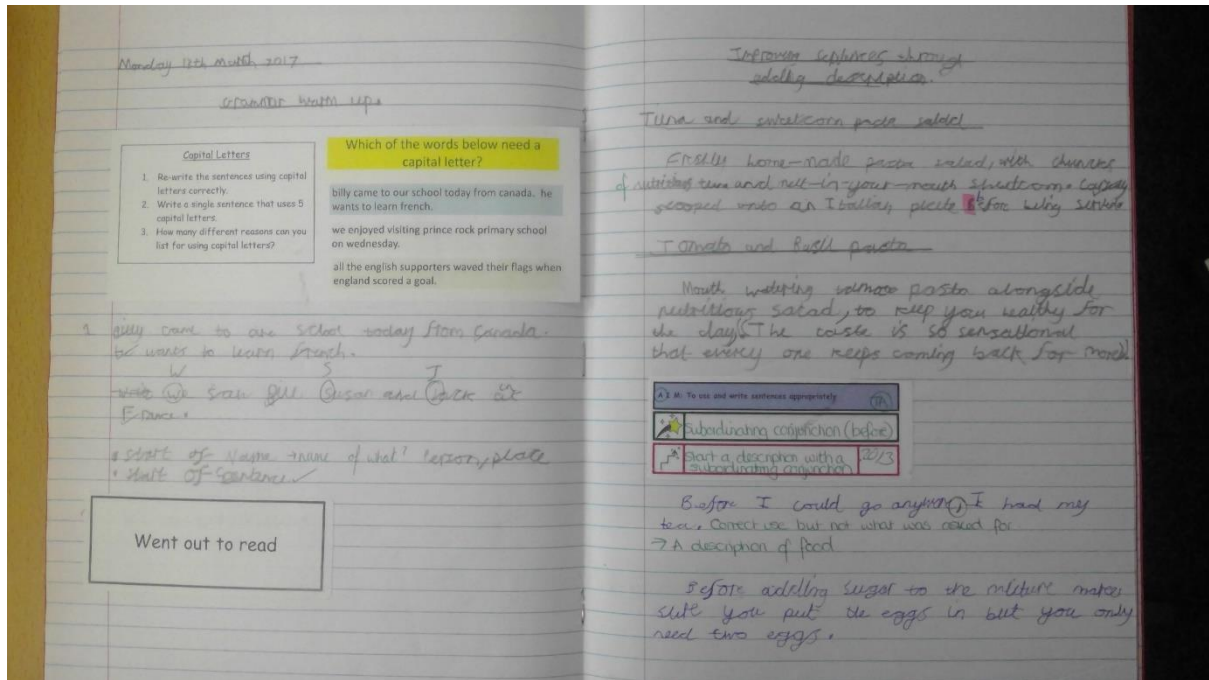 Monday 13th March 2017
Grammar warm up.
Capital Letters
1. Re-write the sentences using capital
letters correctly.
2. Write a single sentence that uses 5
capital letters.
3. How many different reasons can you
list for using capital letters?
Which of the words below need a
capital letter?
billy came to our school today from canada. he
wants to learn french.
we enjoyed visiting prince rock primary school
on wednesday.
all the english supporters waved their flags when
england scored a goal.
1 came to our today from Canada.
he wants to learn french.
W S J
we saw Susan and Jack
• start of name of what? person, place
• start of sentence ✓
Went out to read
Improving sentences through
adding description.
Tuna and sweetcorn pasta
home-made pasta salad, with chunks
of nutritious tuna and melt-in-your-mouth sweetcorn.
scooped onto an plate before being
Tomato and pasta
Mouth watering pasta alongside
nutritious salad, to keep you healthy for
the day! The taste is so sensational
that every one keeps coming back for more!
AIM: To use and write sentences appropriately TA
subordinating conjunction (before)
Start a description with a
subordinating conjunction 20/3
Before I could go anywhere, I had my
tea. Correct use but not what was asked for
→ A description of food
Before adding sugar to the mixture make
sure you put the eggs in but you only
need two eggs.